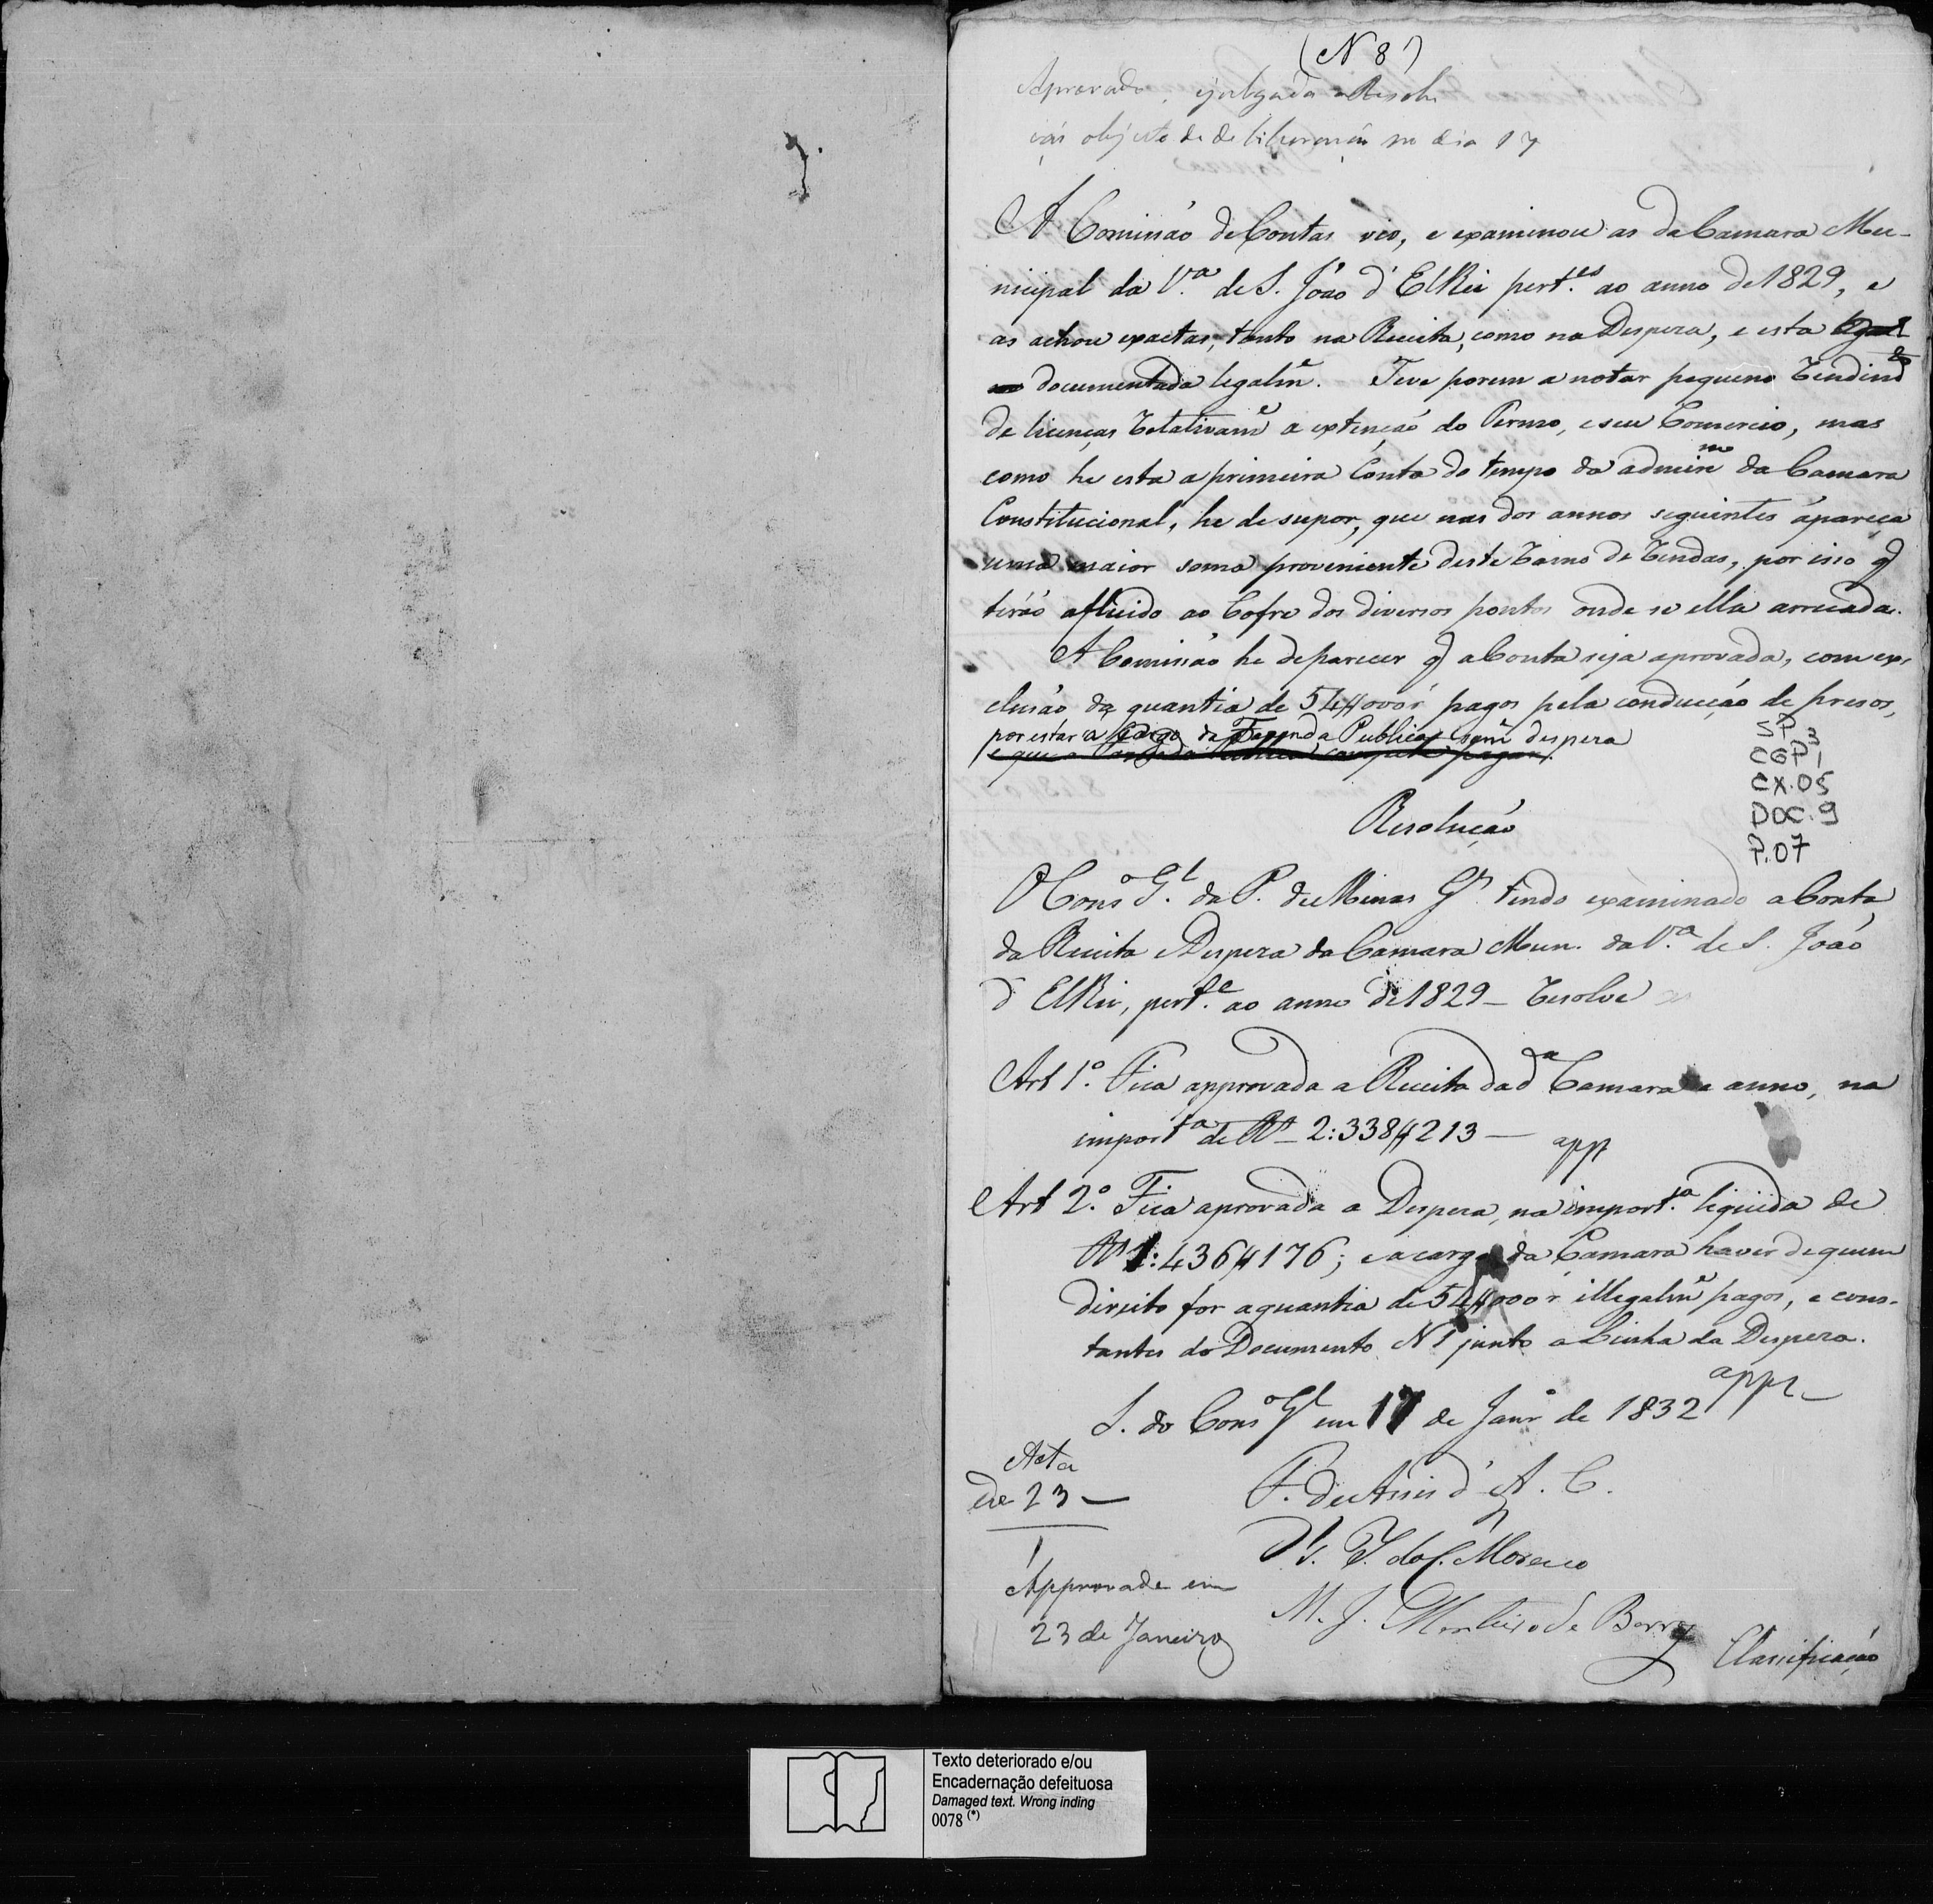 (N 8)
Aprovado, e julgada a Resolu
ção objecto de deliberação no dia 17
A Comissão de Contas vio, e examinou as da Camara Mu-
nicipal da V.ª de S. João d'ElRei pert.es ao anno de 1829, e
as achou exactas, tanto na Receita, como na Despeza, e esta
documentada legalm.e. Teve porem a notar pequeno rendim.to
de licenças relativam.e a extenção do Termo, e seu Comercio, mas
como he esta a primeira Conta do tempo da admin da Camara
Constitucional, he de supor, que nas dos annos seguintes apareça
uma maior soma proveniente deste ramo de rendas, por isso q
terão afluido ao Cofre dos diversos pontos onde se ella arrecada.
A Comissão he de parecer q a Conta seja aprovada, com ex-
clusão da quantia de 54$000 r pagos pela conducção de presos,
por estar a Cargo da Fazenda Publica sem.e despeza
e que a Fazenda Publica compete pagar.
SP 3
CGP 1
CX.05
DOC. 9
P.07
Resolução
O Cons.o G.l da P. de Minas G.s tendo examinado a Conta
da Receita e Despeza da Camara Mun. da V.ª de S. João
d'ElRei, pert.e ao anno de 1829 – resolve
Art 1.º Fica approvada a Receita da d.a Camara e anno, na
import.a de R.s – 2:338$213 — app
Art 2.º Fica aprovada a Despeza, na import.a liquida de
R.s 1:436$176; e a cargo da Camara haver de quem
direito for a quantia de 54$000 r illegalm.e pagos, e cons-
tantes do Documento N 1 junto a Linha da Despeza.
appr –
S. do Cons.o G.l em 17 de Janr.o de 1832
Acta
de 23 —
F. de Assis d'A. C.
J. da C. Moreno
Approvada em
23 de Janeiro
M. J. Monteiro de Barros
Classificação
Texto deteriorado e/ou
Encadernação defeituosa
Damaged text. Wrong inding
0078 (*)